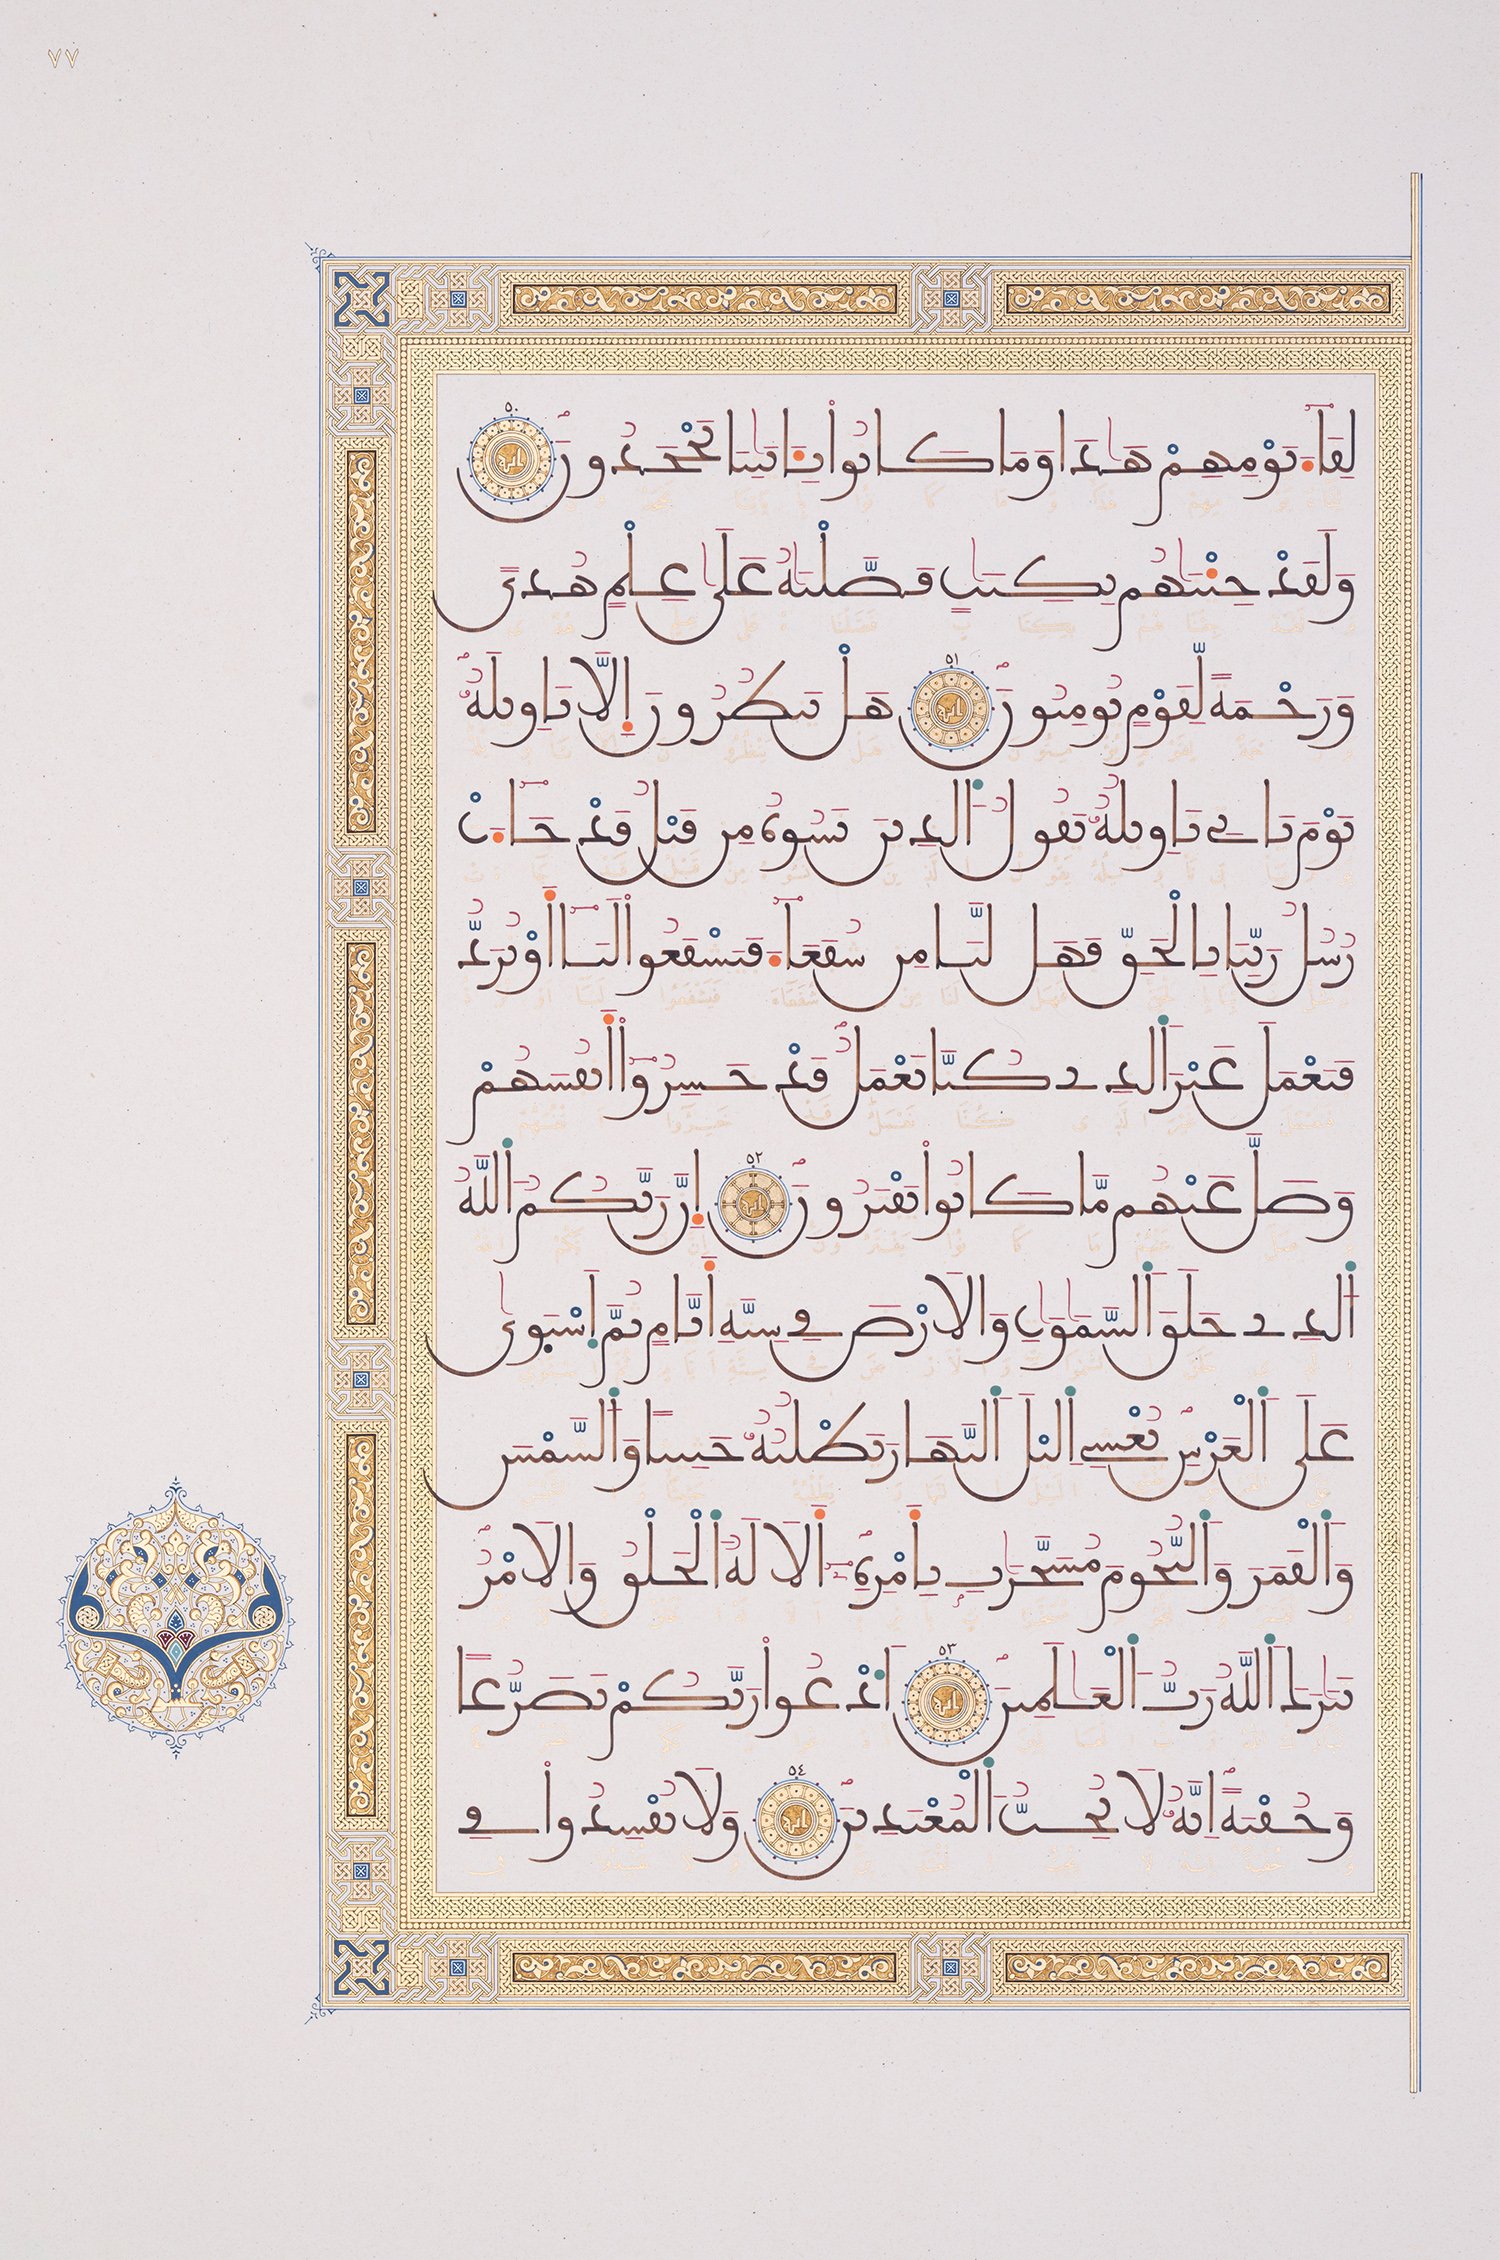 ٧٧
لِقَآءَ يَوْمِهِمْ هَٰذَا وَمَا كَانُوا۟ بِـَٔايَٰتِنَا يَجْحَدُونَ ٥٠
وَلَقَدْ جِئْنَٰهُم بِكِتَٰبٍ فَصَّلْنَٰهُ عَلَىٰ عِلْمٍ هُدًى
وَرَحْمَةً لِّقَوْمٍ يُومِنُونَ ٥١ هَلْ يَنظُرُونَ إِلَّا تَاوِيلَهُۥ
يَوْمَ يَاتِے تَاوِيلُهُۥ يَقُولُ ٱلَّذِينَ نَسُوهُ مِن قَبْلُ قَدْ جَآءَتْ
رُسُلُ رَبِّنَا بِالْحَقِّ فَهَل لَّنَا مِن شُفَعَآءَ فَيَشْفَعُوا۟ لَنَآ أَوْ نُرَدُّ
فَنَعْمَلَ غَيْرَ ٱلَّذِے كُنَّا نَعْمَلُ قَدْ خَسِرُوٓا۟ أَنفُسَهُمْ
وَضَلَّ عَنْهُم مَّا كَانُوا۟ يَفْتَرُونَ ٥٢ إِنَّ رَبَّكُمُ ٱللَّهُ
ٱلَّذِے خَلَقَ ٱلسَّمَٰوَٰتِ وَالَارْضَ فِے سِتَّةِ أَيَّامٍ ثُمَّ ٱسْتَوَىٰ
عَلَى ٱلْعَرْشِ يُغْشِے ٱلَيْلَ ٱلنَّهَارَ يَطْلُبُهُۥ حَثِيثًا وَٱلشَّمْسَ
وَٱلْقَمَرَ وَٱلنُّجُومَ مُسَخَّرَٰتٍۭ بِأَمْرِهِۦٓ أَلَا لَهُ ٱلْخَلْقُ وَالَامْرُ
تَبَٰرَكَ ٱللَّهُ رَبُّ ٱلْعَٰلَمِينَ ٥٣ ٱدْعُوا۟ رَبَّكُمْ تَضَرُّعًا
وَخُفْيَةً اِنَّهُۥ لَا يُحِبُّ ٱلْمُعْتَدِينَ ٥٤ وَلَا تُفْسِدُوا۟ فِے